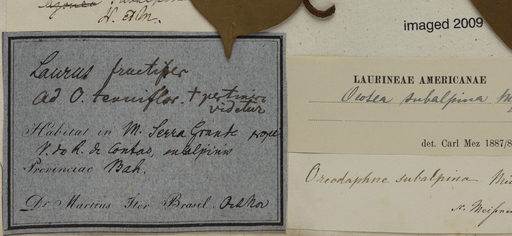 H. et Bn.
imaged 2009
Laurus fructifer
ad O. tenuiflor. + pertinere
videtur
Habitat in M. Serra Grant prope
V. do R. de Contas, subalpinis
Provinciae Bah.
Dr Martius Iter Brasil. Oct Nov
LAURINEAE AMERICANAE
Ocotea subalpina
det. Carl Mez 1887/8
Oreodaphne subalpina